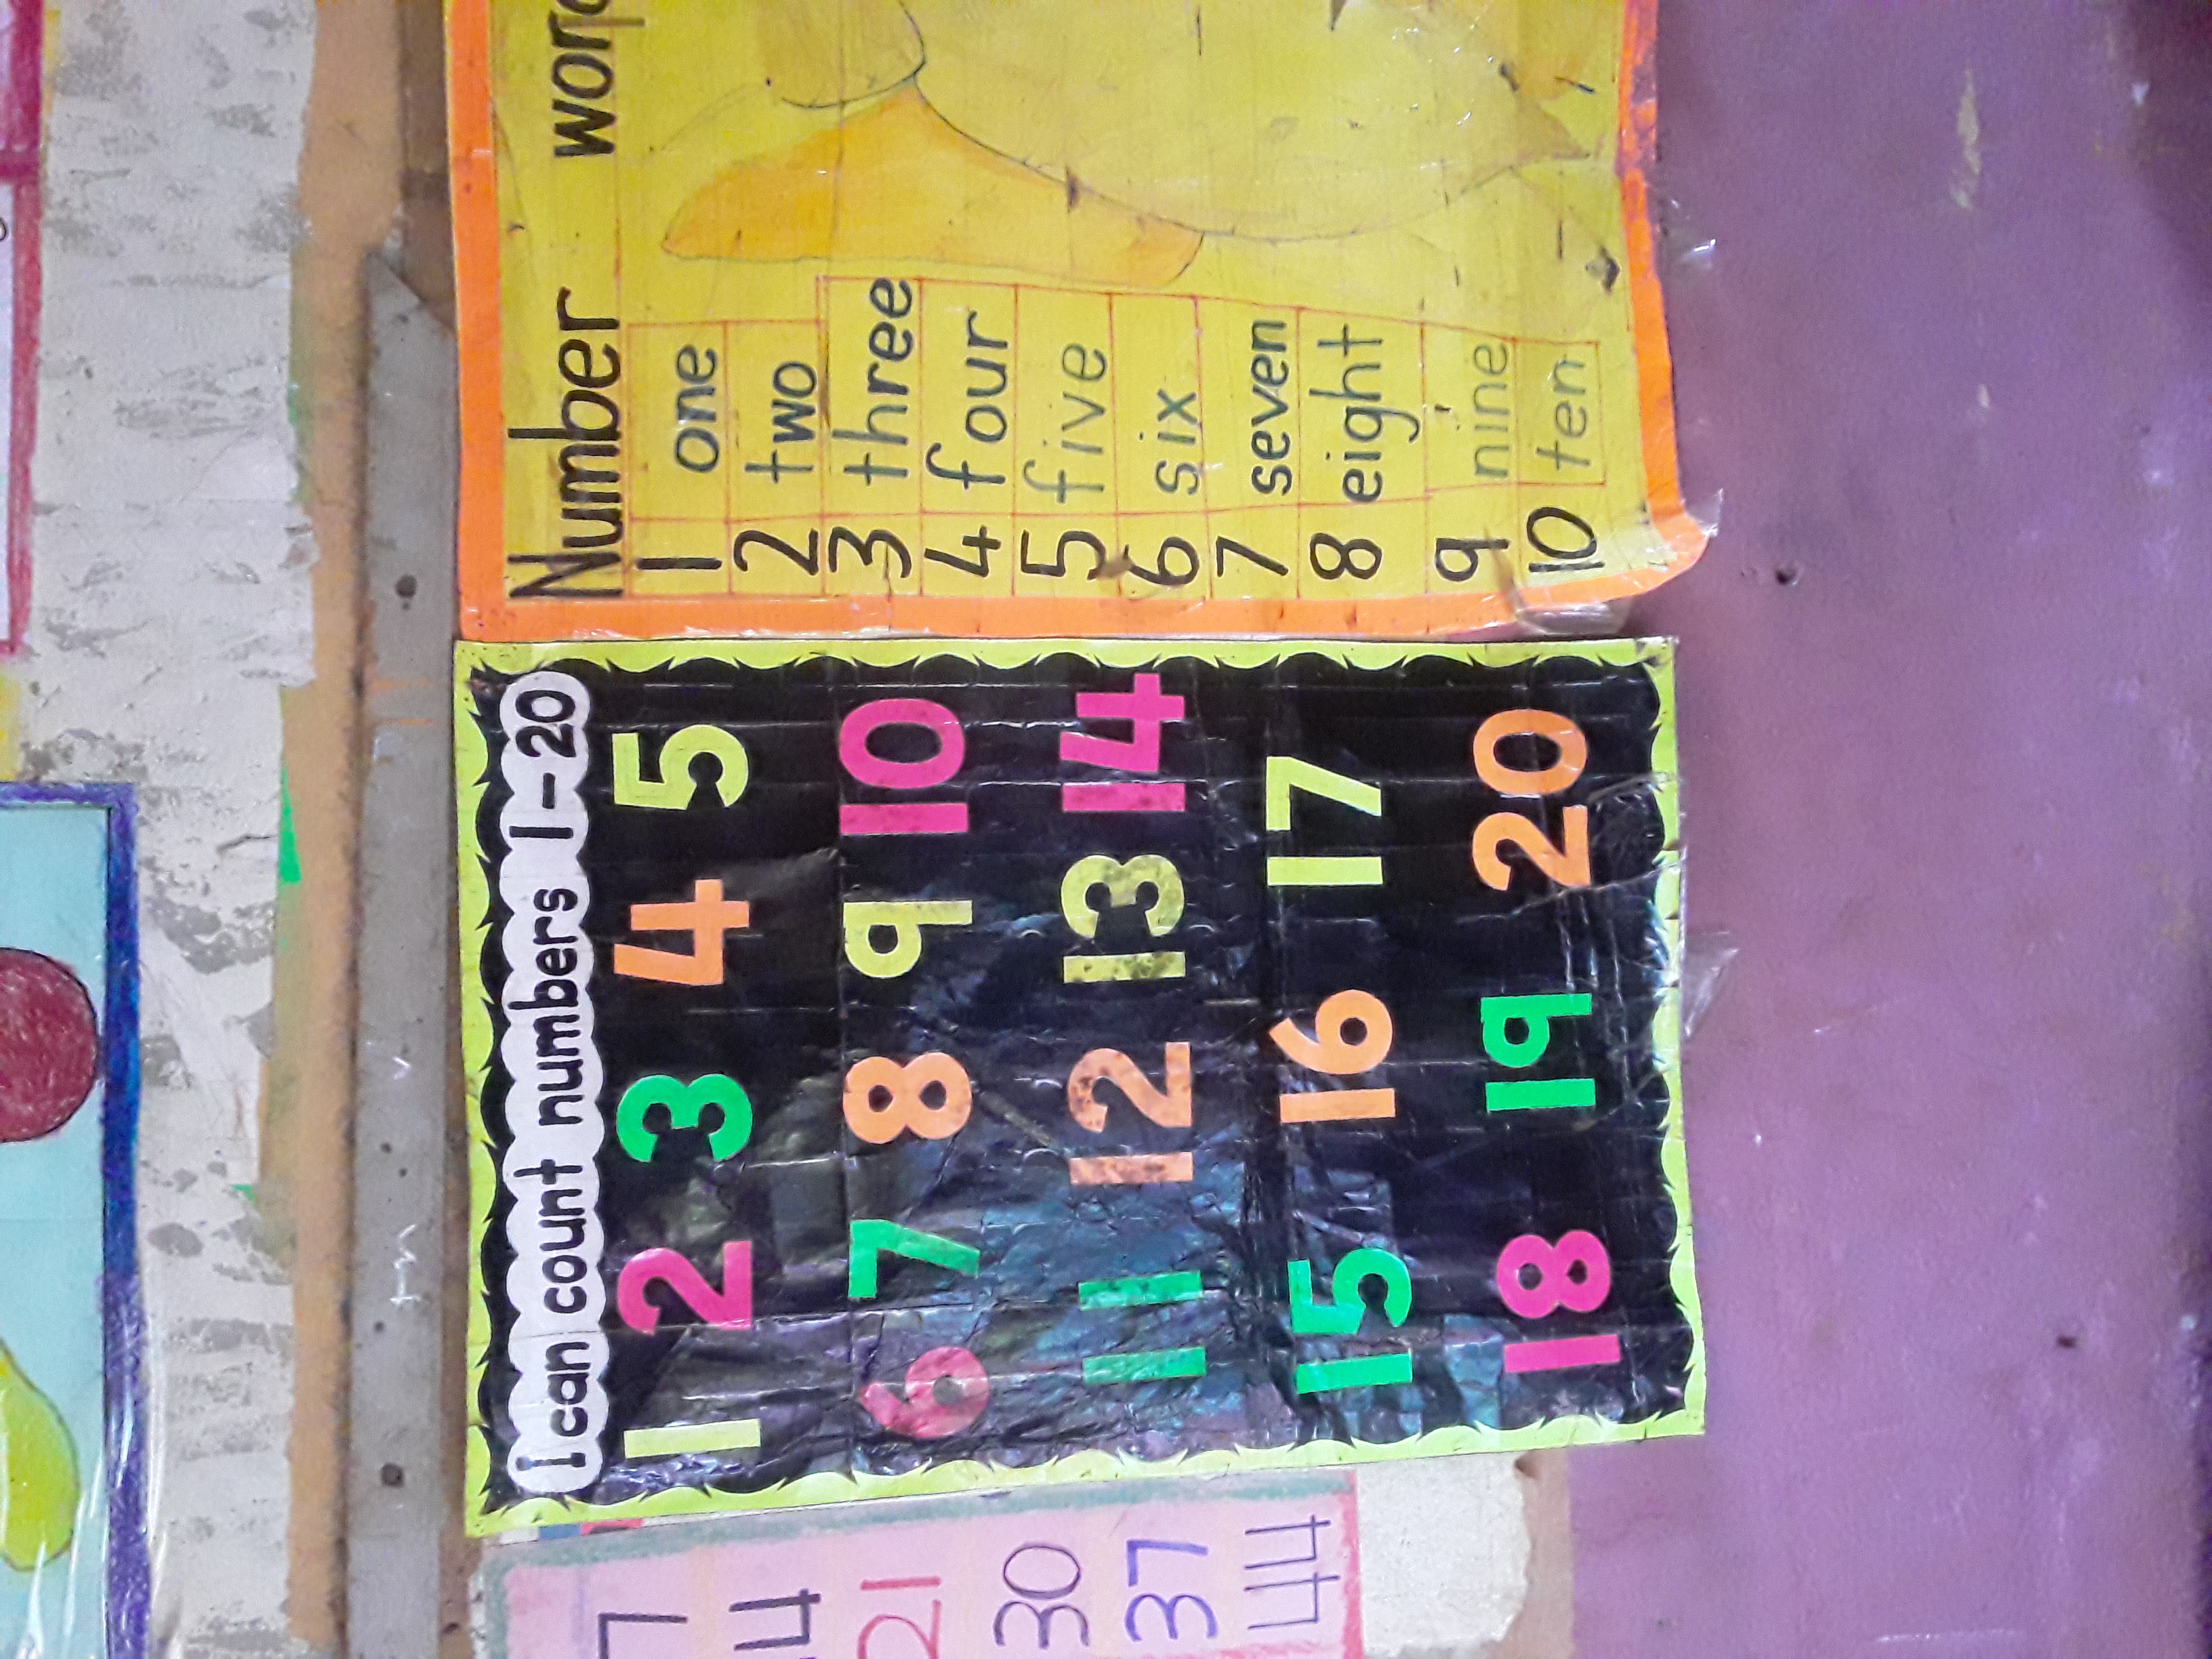 7
14
21
30
37
44
I can count numbers 1-20
1 2 3 4 5
6 7 8 9 10
11 12 13 14
15 16 17
18 19 20
Number
1 one
2 two
3 three
4 four
5 five
6 six
7 seven
8 eight
9 nine
10 ten